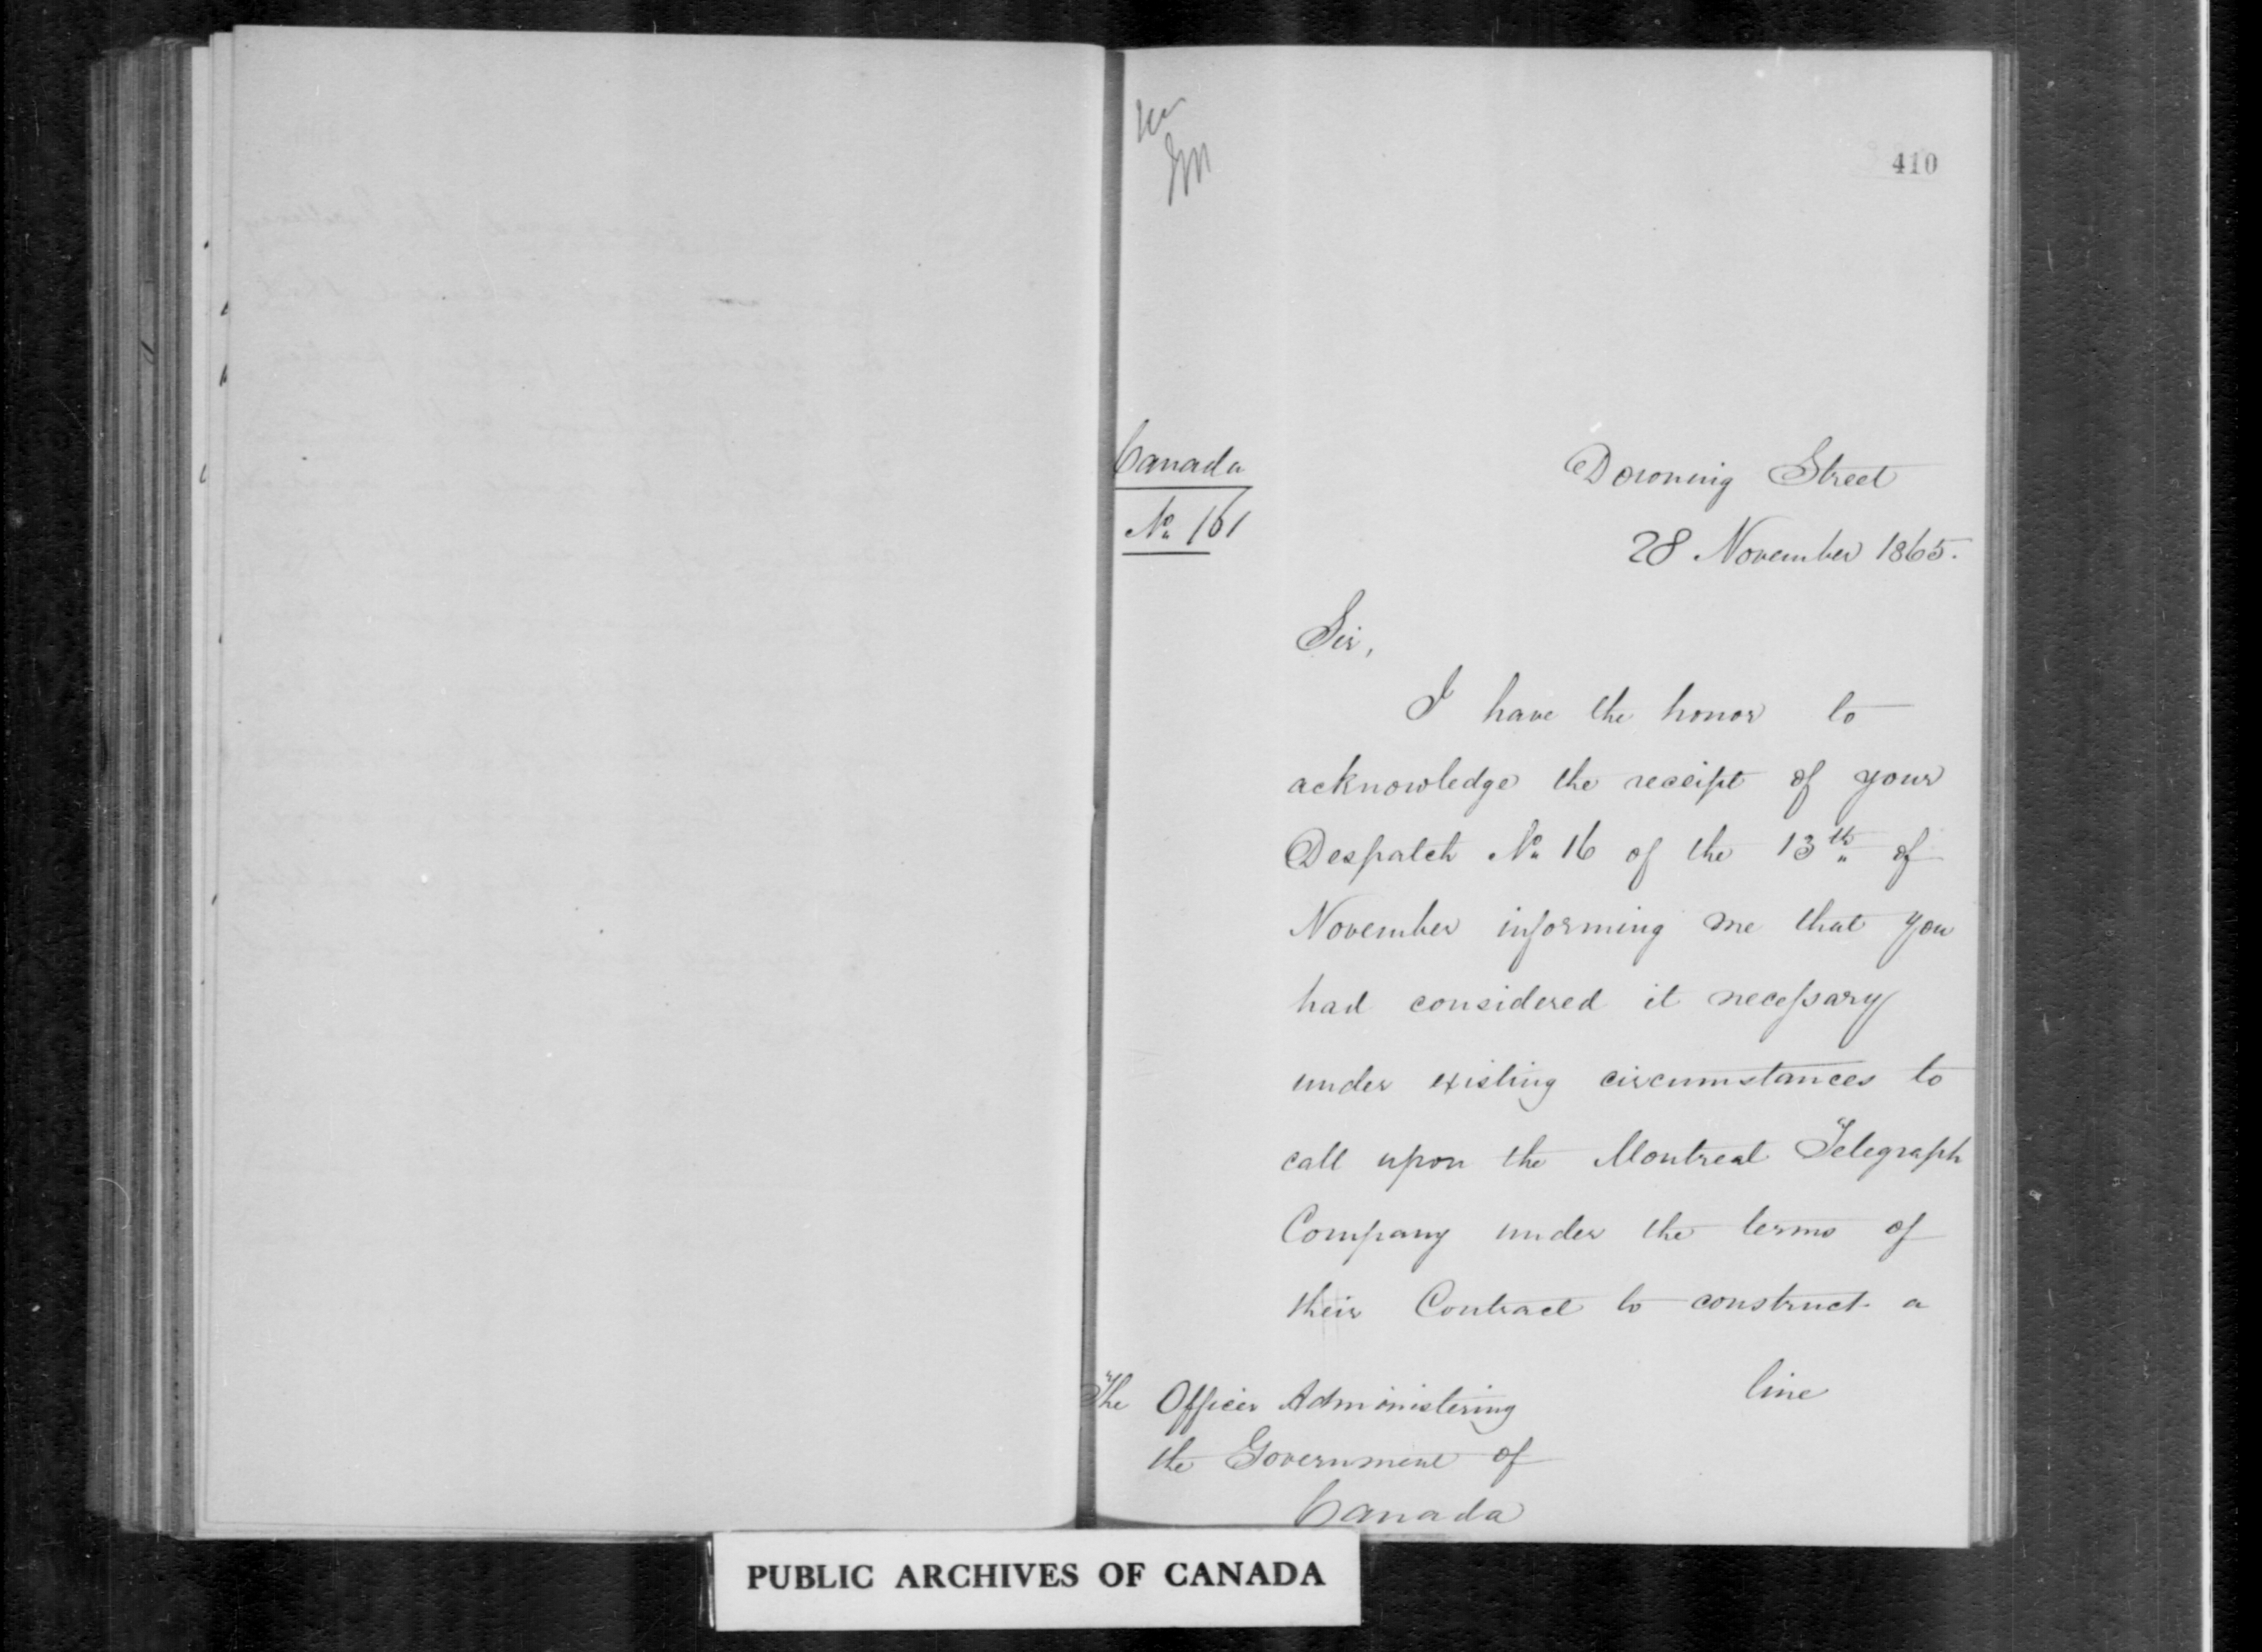 410
Canada
No 161
Downing Street
28 November 1865.
Sir,
I have the honor to
acknowledge the receipt of your
Despatch No 16 of the 13th of
November informing me that you
had considered it necessary
under existing circumstances to
call upon the Montreal Telegraph
Company under the terms of
their Contract to construct a
line
The Officer Administering
the Government of
Canada
PUBLIC ARCHIVES OF CANADA